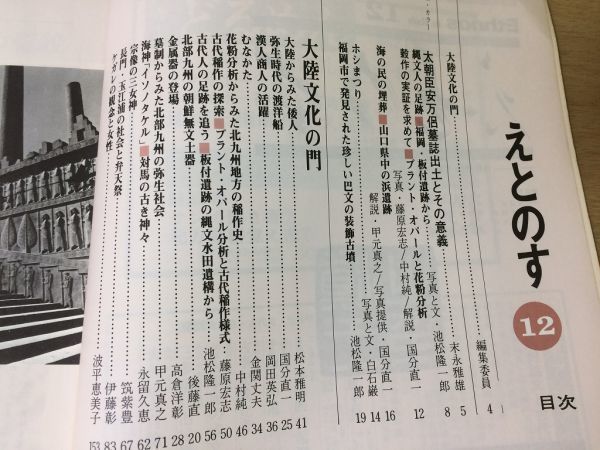 えとのす 12
目次
・カラー
大陸文化の門……編集委員 4
太朝臣安万侶墓誌出土とその意義……末永雅雄 5
縄文人の足跡■福岡・板付遺跡から……写真と文・池松隆一郎 8
穀作の実証を求めて■プラント・オパールと花粉分析
写真・藤原宏志/中村純/解説・国分直一 12
海の民の埋葬■山口県中の浜遺跡……解説・甲元真之/写真提供・国分直一 16
ホシまつり……写真と文・白石巌 14
福岡市で発見された珍しい巴文の装飾古墳……写真と文・池松隆一郎 19
大陸文化の門
大陸からみた倭人……松本雅明 41
弥生時代の渡洋船……国分直一 25
漢人商人の活躍……岡田英弘 36
むなかた……金関丈夫 34
花粉分析からみた北九州地方の稲作史……中村純 46
古代稲作の探索■プラント・オパール分析と古代稲作様式…藤原宏志 50
古代人の足跡を追う■板付遺跡の縄文水田遺構から……池松隆一郎 56
北部九州の朝鮮無文土器……後藤直 20
金属器の登場……高倉洋彰 28
墓制からみた北部九州の弥生社会……甲元真之 71
海神「イソノタケル」■対馬の古き神々……永留久恵 62
宗像の三女神……筑紫豊 67
長門・玉江浦の社会と弁天祭……伊藤彰 83
ケガレの観念と女性……波平恵美子 153